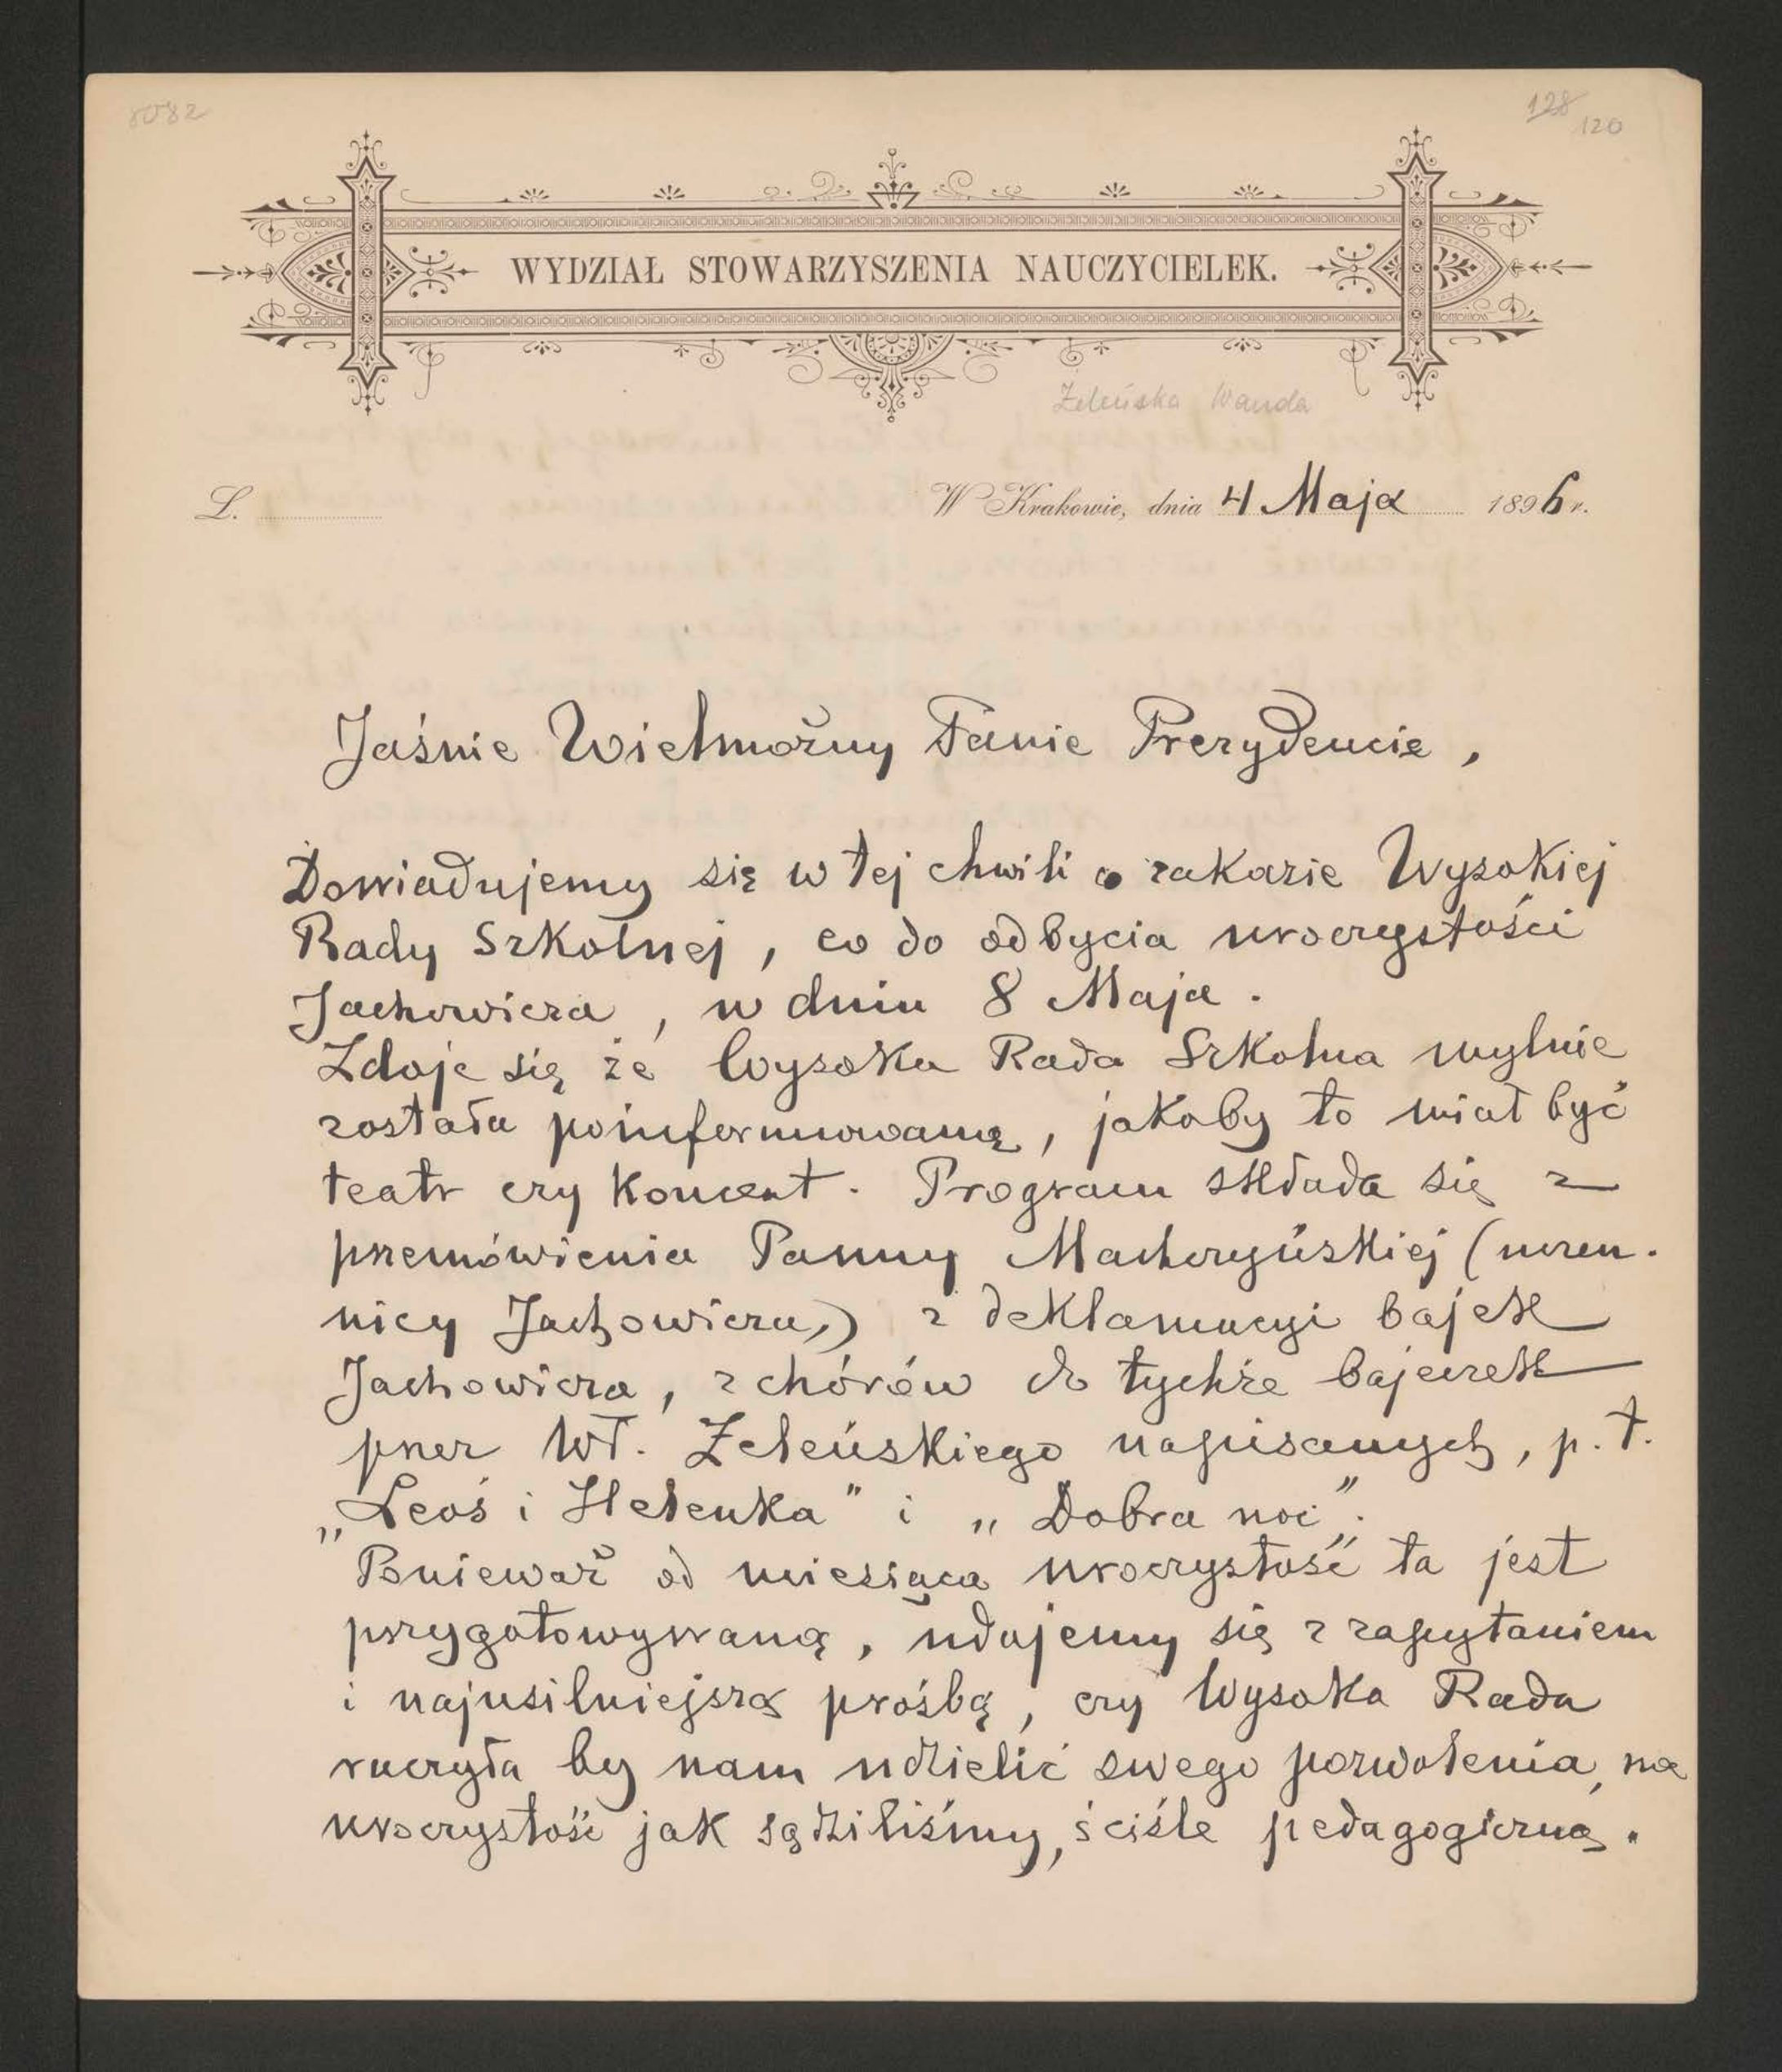 8082
128
120
WYDZIAŁ STOWARZYSZENIA NAUCZYCIELEK.
Żeleńska Wanda
L.
W Krakowie, dnia 4 Maja 1896 r.
Jaśnie Wielmożny Panie Prezydencie,
Dowiadujemy się w tej chwili o zakazie Wysokiej
Rady Szkolnej, co do odbycia uroczystości
Jachowicza, w dniu 8 Maja.
Zdaje się że Wysoka Rada Szkolna mylnie
została poinformowaną, jakoby to miał być
teatr czy koncert. Program składa się z
przemówienia Panny Maczeryńskiej (uczen-
nicy Jachowicza,) z deklamacyi bajek
Jachowicza, z chórów do tychże bajeczek
przez Wł. Żeleńskiego napisanych, p. t.
„Leoś i Helenka" i „Dobra noc".
Ponieważ od miesiąca uroczystość ta jest
przygotowywaną, udajemy się z zapytaniem
i najusilniejszą prośbą, czy Wysoka Rada
raczyła by nam udzielić swego pozwolenia, na
uroczystość jak sądziliśmy, ściśle pedagogiczną.